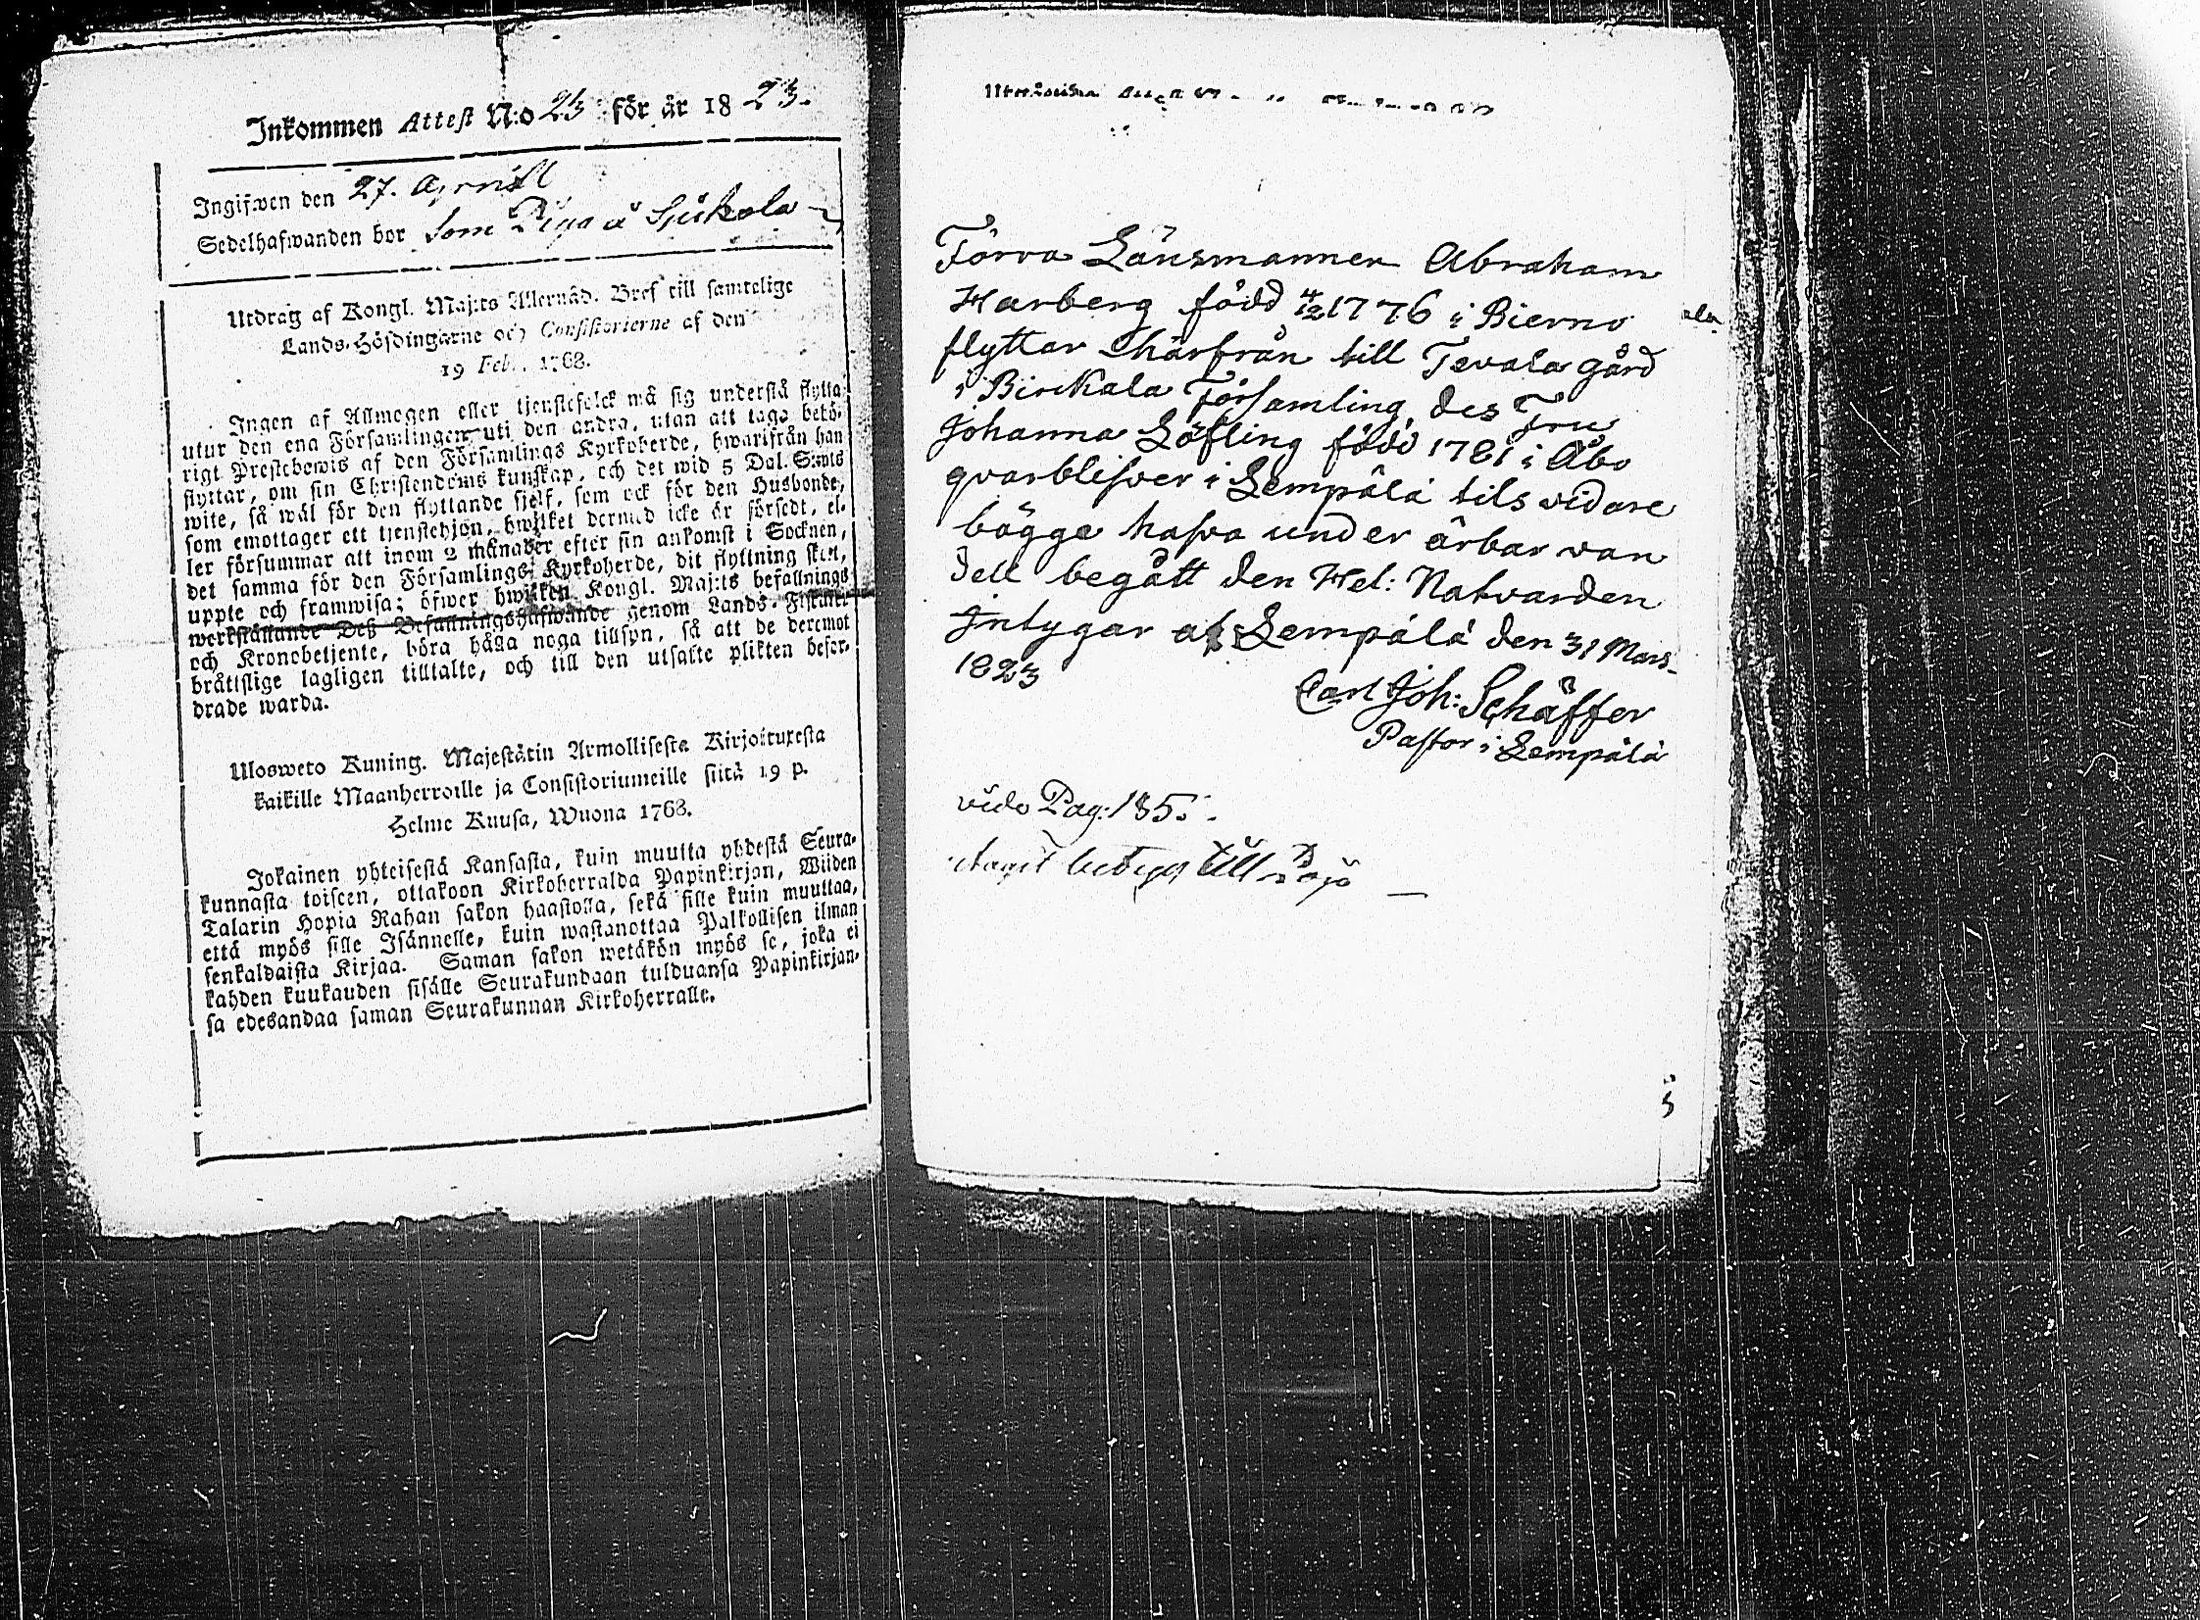 Inkommen Attest N:o 23 för år 1823.
Ingifwen den 27. Aprill
Sedelhafwanden bor som Piga å Sjukola
Utdrag af Kongl. Maj:ts Allernåd. Bref till samtelige
Lands-Höfdingarne och Consistorierne af den
19 Feb. 1768.
Ingen af Allmogen eller tjenstefolck må sig understå flytta
utur den ena Församlingen uti den andra, utan att taga behö-
rigt Prestebewis af den Församlings Kyrkoherde, hwarifrån han
flyttar, om sin Christendoms kunskap, och det wid 5 Dal. S:mts
wite, så wäl för den flyttande sjelf, som ock för den Husbonde,
som emottager ett tjenstehjon, hwilket dermed icke är försedt, el-
ler försummar att inom 2 månader efter sin ankomst i Socknen,
det samma för den Församlings Kyrkoherde, dit flyttning skett,
uppte och framwisa; öfwer hwilken Kongl. Maj:ts befallnings
werkställande Deß Befallningshafwande genom Lands-Fiskaler
och Kronobetjente, böra hålla noga tillsyn, så att de deremot
bråttslige lagligen tilltalte, och till den utsatte plikten befor-
drade warda.
Ulosweto Kuning. Majestätin Armollisesta Kirjoituxesta
kaikille Maanherroille ja Consistoriumeille siitä 19 p.
Helme Kuusa, Wuona 1768.
Jokainen yhteisestä Kansasta, kuin muutta yhdestä Seura-
kunnasta toiseen, ottakoon Kirkoherralda Papinkirjan, Wiiden
Talarin Hopia Rahan sakon haastolla, sekä sille kuin muuttaa,
että myös sille Isännelle, kuin wastanottaa Palkollisen ilman
senkaldaista Kirjaa. Saman sakon wetäkön myös se, joka ei
kahden kuukauden sisälle Seurakundaan tulduansa Papinkirjan-
sa edesandaa saman Seurakunnan Kirkoherralle.
Förra Länsmannen Abraham
Harberg född 4/12 1776 i Bierno
flyttar härifrån till Tevala gård
i Birckala Församling, des Fru
Johanna Löfling född 1781 i Åbo
qvarblifver i Lempälä tils vidare
bägge hafva under ärbar van
dell begått den Hel: Natvarden
Intygar af Lempälä den 31 Mars
1823
Carl Joh: Schäffer
Pastor i Lempälä
vide Pag: 185.
till